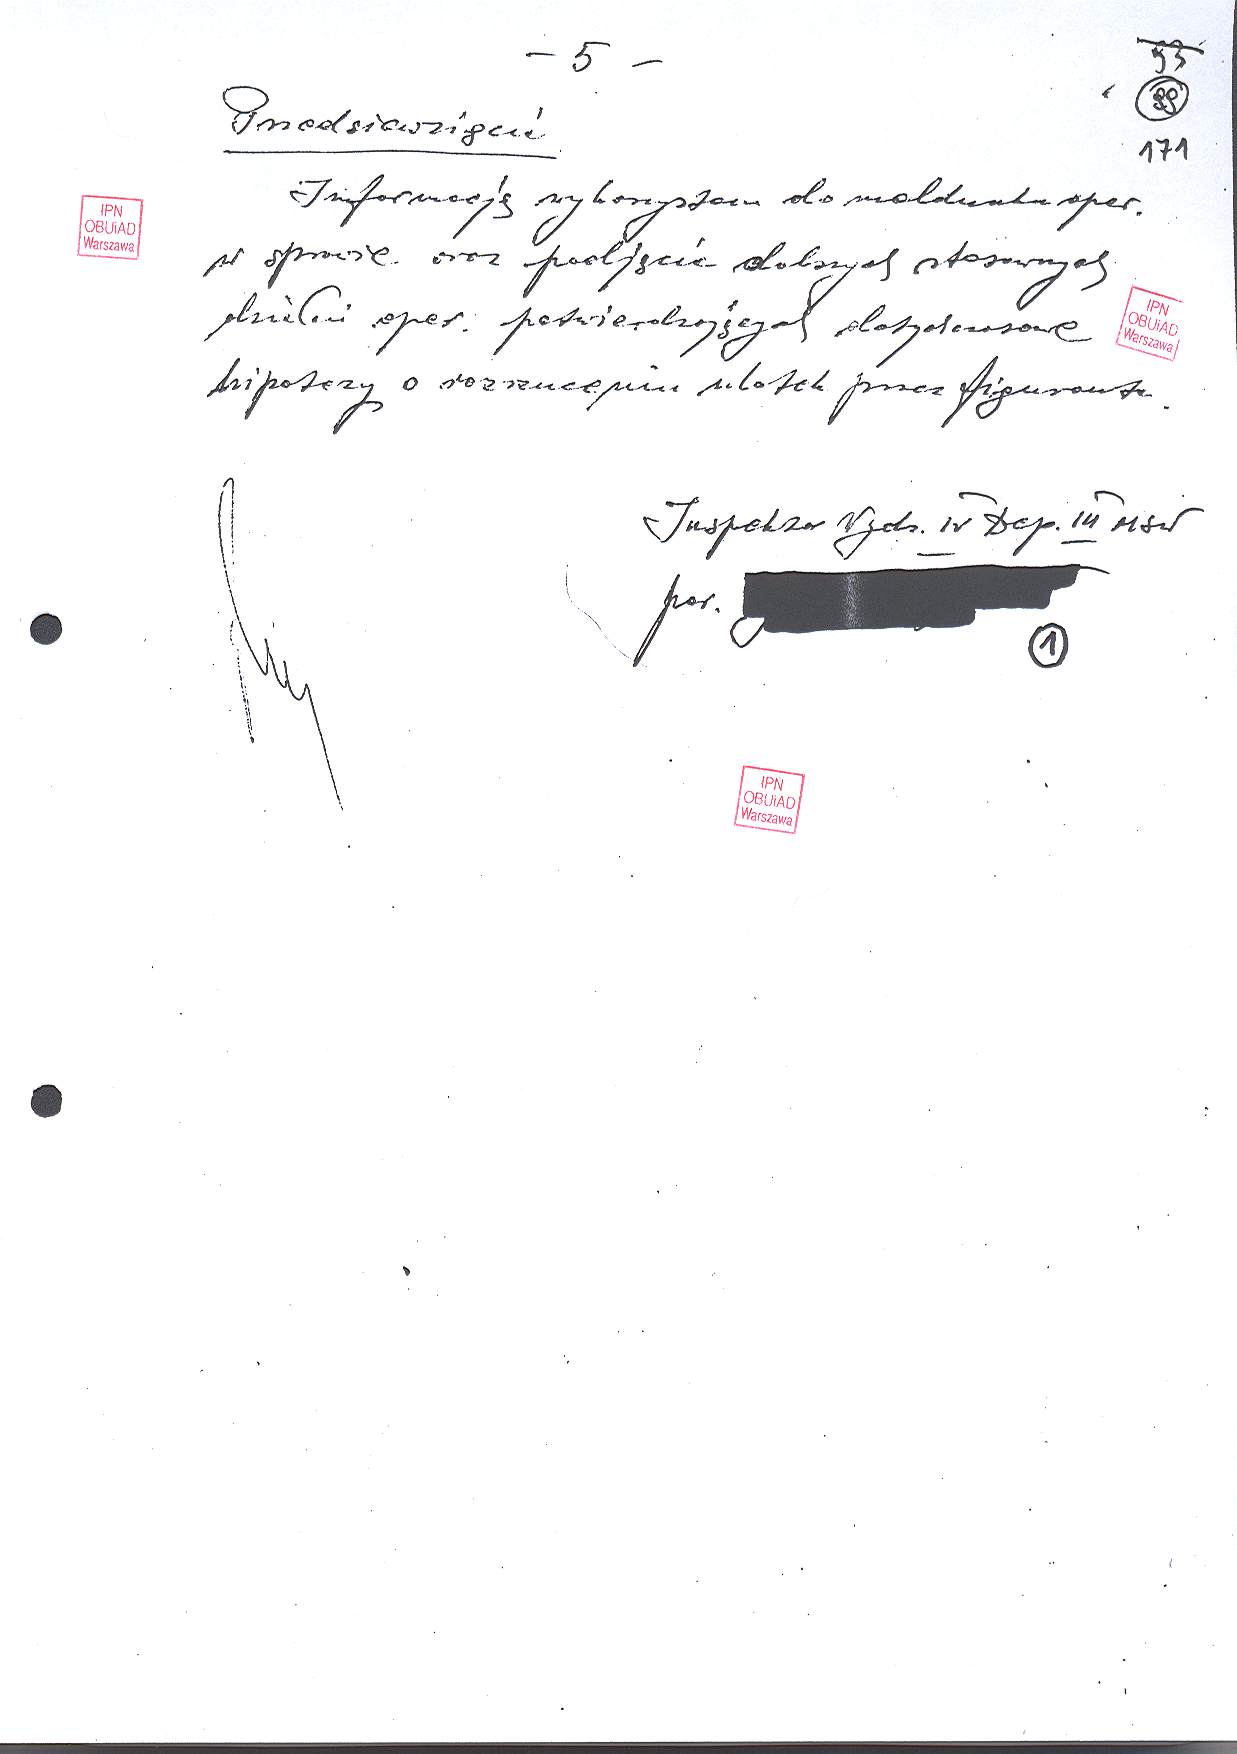 - 5 -
99
171
Przedsięwzięcia
Informację wykorzystam do meldunku oper.
w sprawie oraz podjęcia dalszych stosownych
działań oper. potwierdzających dotychczasowe
hipotezy o rozrzucaniu ulotek przez figuranta.
IPN
OBUiAD
Warszawa
IPN
OBUiAD
Warszawa
Inspektor Wydz. IV Dep. III MSW
por.
1
IPN
OBUiAD
Warszawa